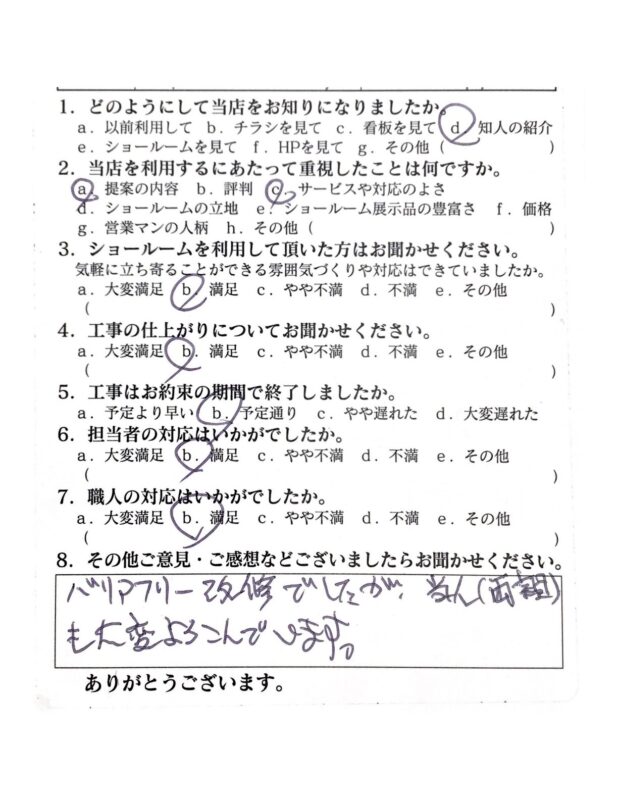 1．どのようにして当店をお知りになりましたか。
a．以前利用して b．チラシを見て c．看板を見て d．知人の紹介
e．ショールームを見て f．HPを見て g．その他（　　　　　　　）
2．当店を利用するにあたって重視したことは何ですか。
a．提案の内容 b．評判 c．サービスや対応のよさ
d．ショールームの立地 e．ショールーム展示品の豊富さ f．価格
g．営業マンの人柄 h．その他（　　　　　　　　　　　　　　　）
3．ショールームを利用して頂いた方はお聞かせください。
気軽に立ち寄ることができる雰囲気づくりや対応はできていましたか。
a．大変満足 b．満足 c．やや不満 d．不満 e．その他
（　　　　　　　　　　　　　　　　　　　　　　　　　　　　）
4．工事の仕上がりについてお聞かせください。
a．大変満足 b．満足 c．やや不満 d．不満 e．その他
（　　　　　　　　　　　　　　　　　　　　　　　　　　　　）
5．工事はお約束の期間で終了しましたか。
a．予定より早い b．予定通り c．やや遅れた d．大変遅れた
6．担当者の対応はいかがでしたか。
a．大変満足 b．満足 c．やや不満 d．不満 e．その他
（　　　　　　　　　　　　　　　　　　　　　　　　　　　　）
7．職人の対応はいかがでしたか。
a．大変満足 b．満足 c．やや不満 d．不満 e．その他
（　　　　　　　　　　　　　　　　　　　　　　　　　　　　）
8．その他ご意見・ご感想などございましたらお聞かせください。
バリアフリー改修でしたが、
も大変よろこんでいます。
ありがとうございます。